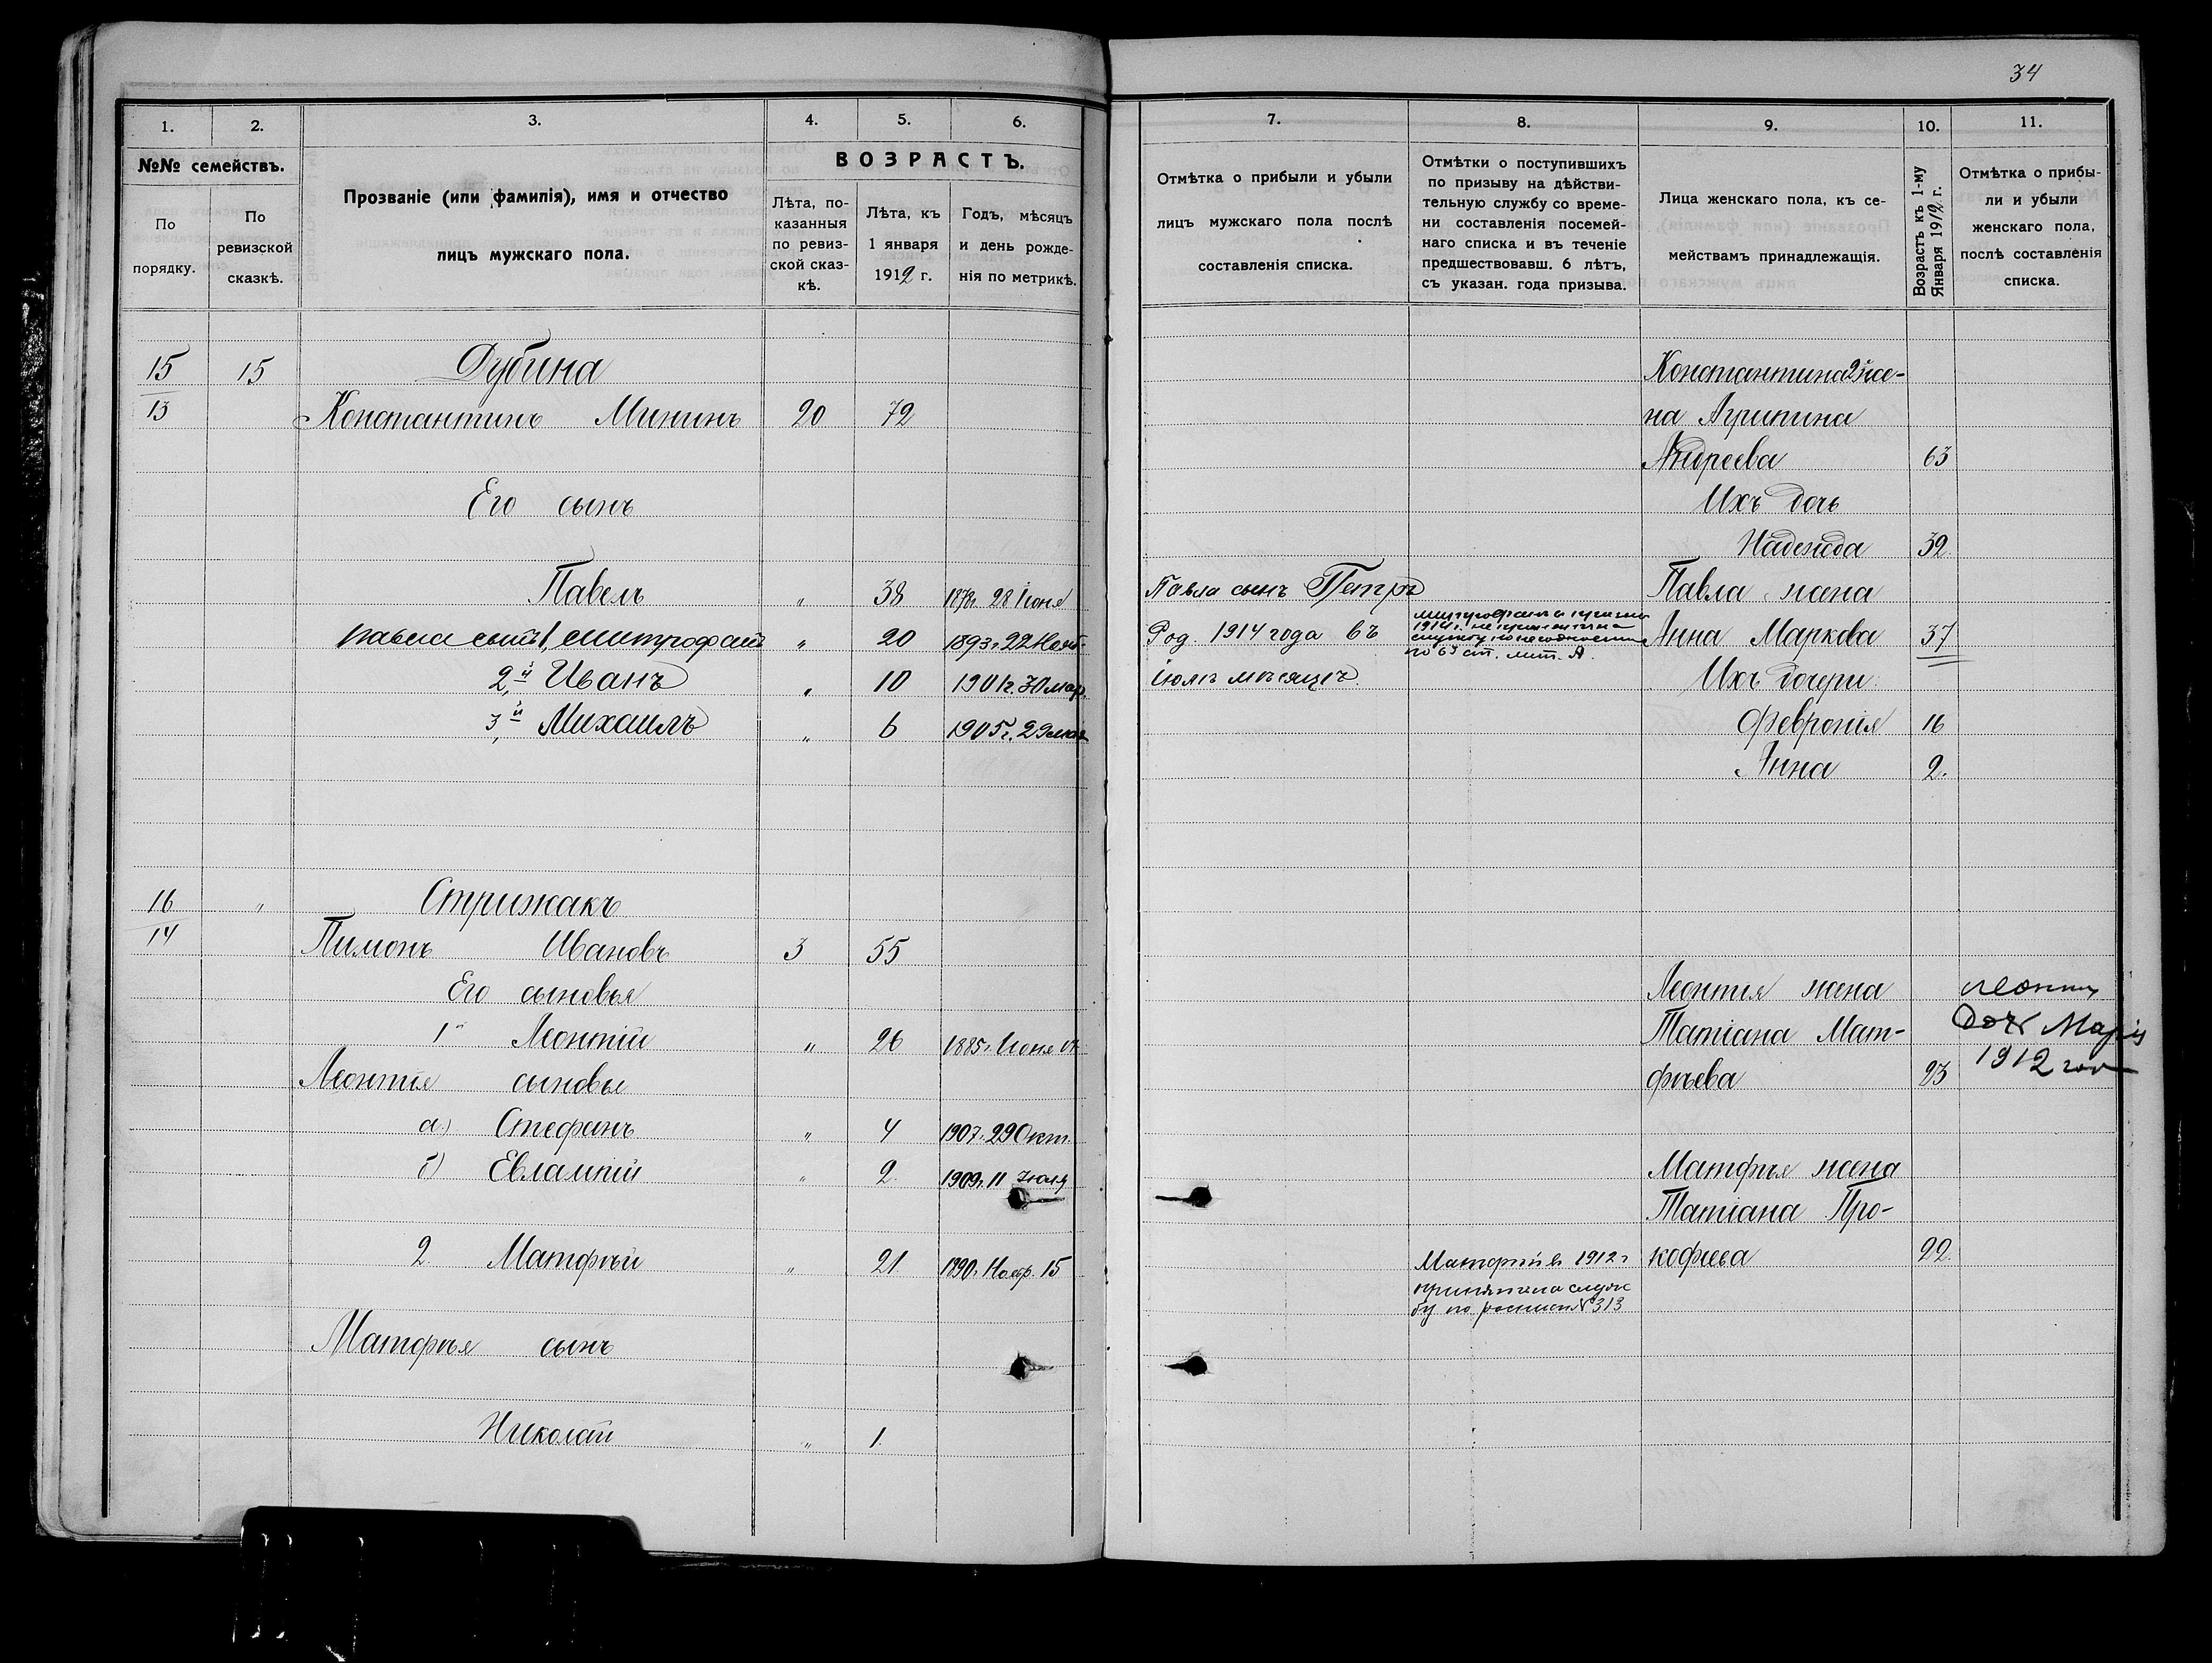 34
1.
2.
3.
4.
5.
6.
№№ семействъ.
По
порядку.
По
ревизской
сказкѣ.
Прозваніе (или фамилія), имя и отчество
лицъ мужскаго пола.
ВОЗРАСТЪ.
Лѣта, по-
казанныя
по ревиз-
ской сказ-
кѣ.
Лѣта, къ
1 января
1912 г.
Годъ, мѣсяцъ
и день рожде-
нія по метрикѣ.
15 15 Дубина
13 Константинъ Мининъ 20 72
Его сынъ
Павелъ " 38 1873г. 28 Іюня
Павла сынъ 1, Митрофанъ " 20 1893г. 22 Нояб.
2,й Иванъ " 10 1901г. 30 мар.
3,й Михаилъ " 6 1905г. 29 мая
16 " Стрижакъ
14 Пимонъ Ивановъ 3 55
Его сыновья
1й Леонтій " 26 1885г. Іюня
Леонтія сыновья
а) Стефанъ " 4 1907г. 29 Окт.
б) Евлампій " 2. 1909г. 11 Іюля
2. Матфѣй " 21. 1890г. Нояб. 15
Матфѣя сынъ
Николай " 1.
7.
8.
9.
10.
11.
Отмѣтка о прибыли и убыли
лицъ мужскаго пола послѣ
составленія списка.
Отмѣтки о поступившихъ
по призыву на дѣйстви-
тельную службу со време-
ни составленія посемей-
наго списка и въ теченіе
предшествовавш. 6 лѣтъ,
съ указан. года призыва.
Лица женскаго пола, къ се-
мействамъ принадлежащія.
Возрастъ къ 1-му
Января 1912 г.
Отмѣтка о прибы-
ли и убыли
женскаго пола,
послѣ составленія
списка.
Константина 2я же-
на Агрипина
Андреева 63
Ихъ дочь
Надежда 32.
Павла сынъ Петръ
Род. 1914 года въ
Іюлѣ мѣсяцѣ.
Митрофанъ
1914г. не принятъ на
службу по негодности
по 63 ст. лит. А.
Павла жена
Анна Маркова 37
Ихъ дочери:
Февронія 16
Анна 2.
Леонтія жена
Татіана Мат-
фѣева 23
Леонтія
Дочь Марія
1912 год
Матфѣя жена
Татіана Про-
кофіева 22.
Матфѣй въ 1912 г
принятъ на служ
бу по росписи № 313